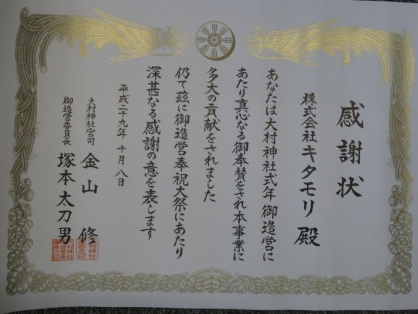 感謝状
株式会社キタモリ殿
あなたは大村神社式年御造営に
あたり真心なる御奉賛をされ本事業に
多大の貢献をされました
仍て茲に御造営奉祝大祭にあたり
深甚なる感謝の意を表します
平成二十九年十月八日
大村神社宮司 金山修
御造営委員長 塚本太刀男